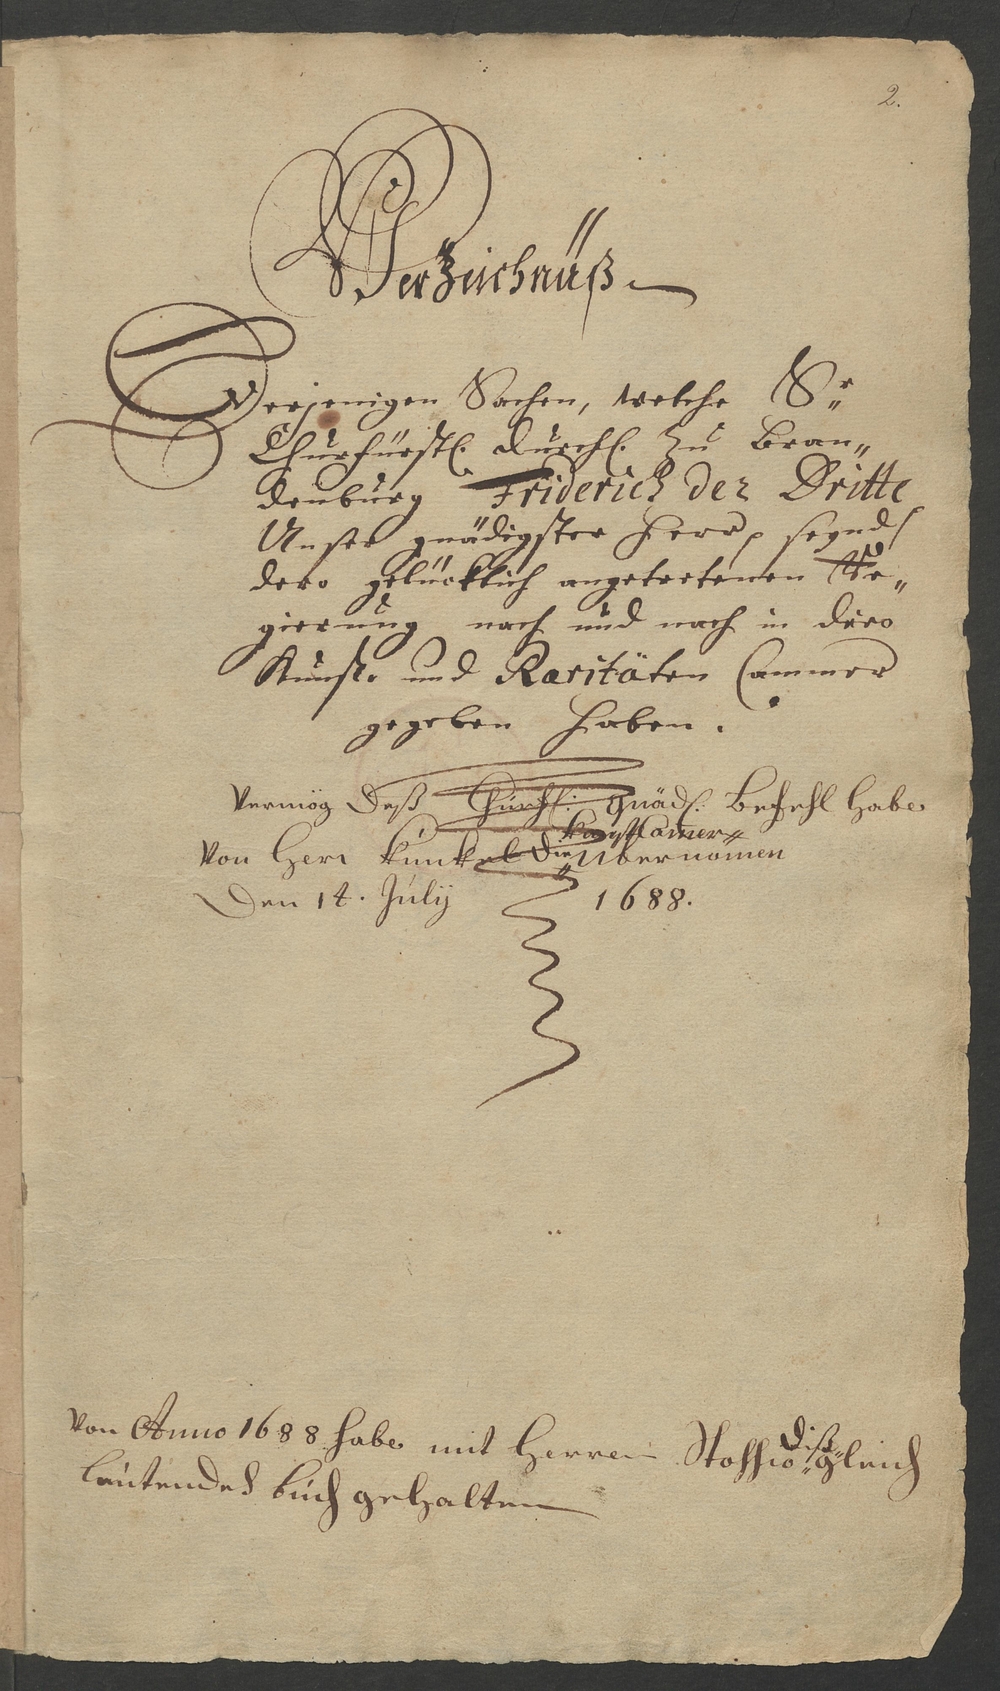 2.
Verzeichnüß
Derjenigen Sachen, welche Sr.
Churfürstl. Durchl. zu Bran„
denburg Friderich der Dritte
Unser gnädigster Herr, seynd
dero gelücklich angetretenen Re„
gierung nach und nach in dero
Kunst- und Raritäten Cammer
gegeben haben.
Vermög deß Churfl: gnäd: Befehl habe
Kunst Camer
Von Herr Kunkel die Ubernomen
Den 14. July 1688.
Von Anno 1688 habe mit Herren Stoschio diß gleich
lautendes buch gehalten